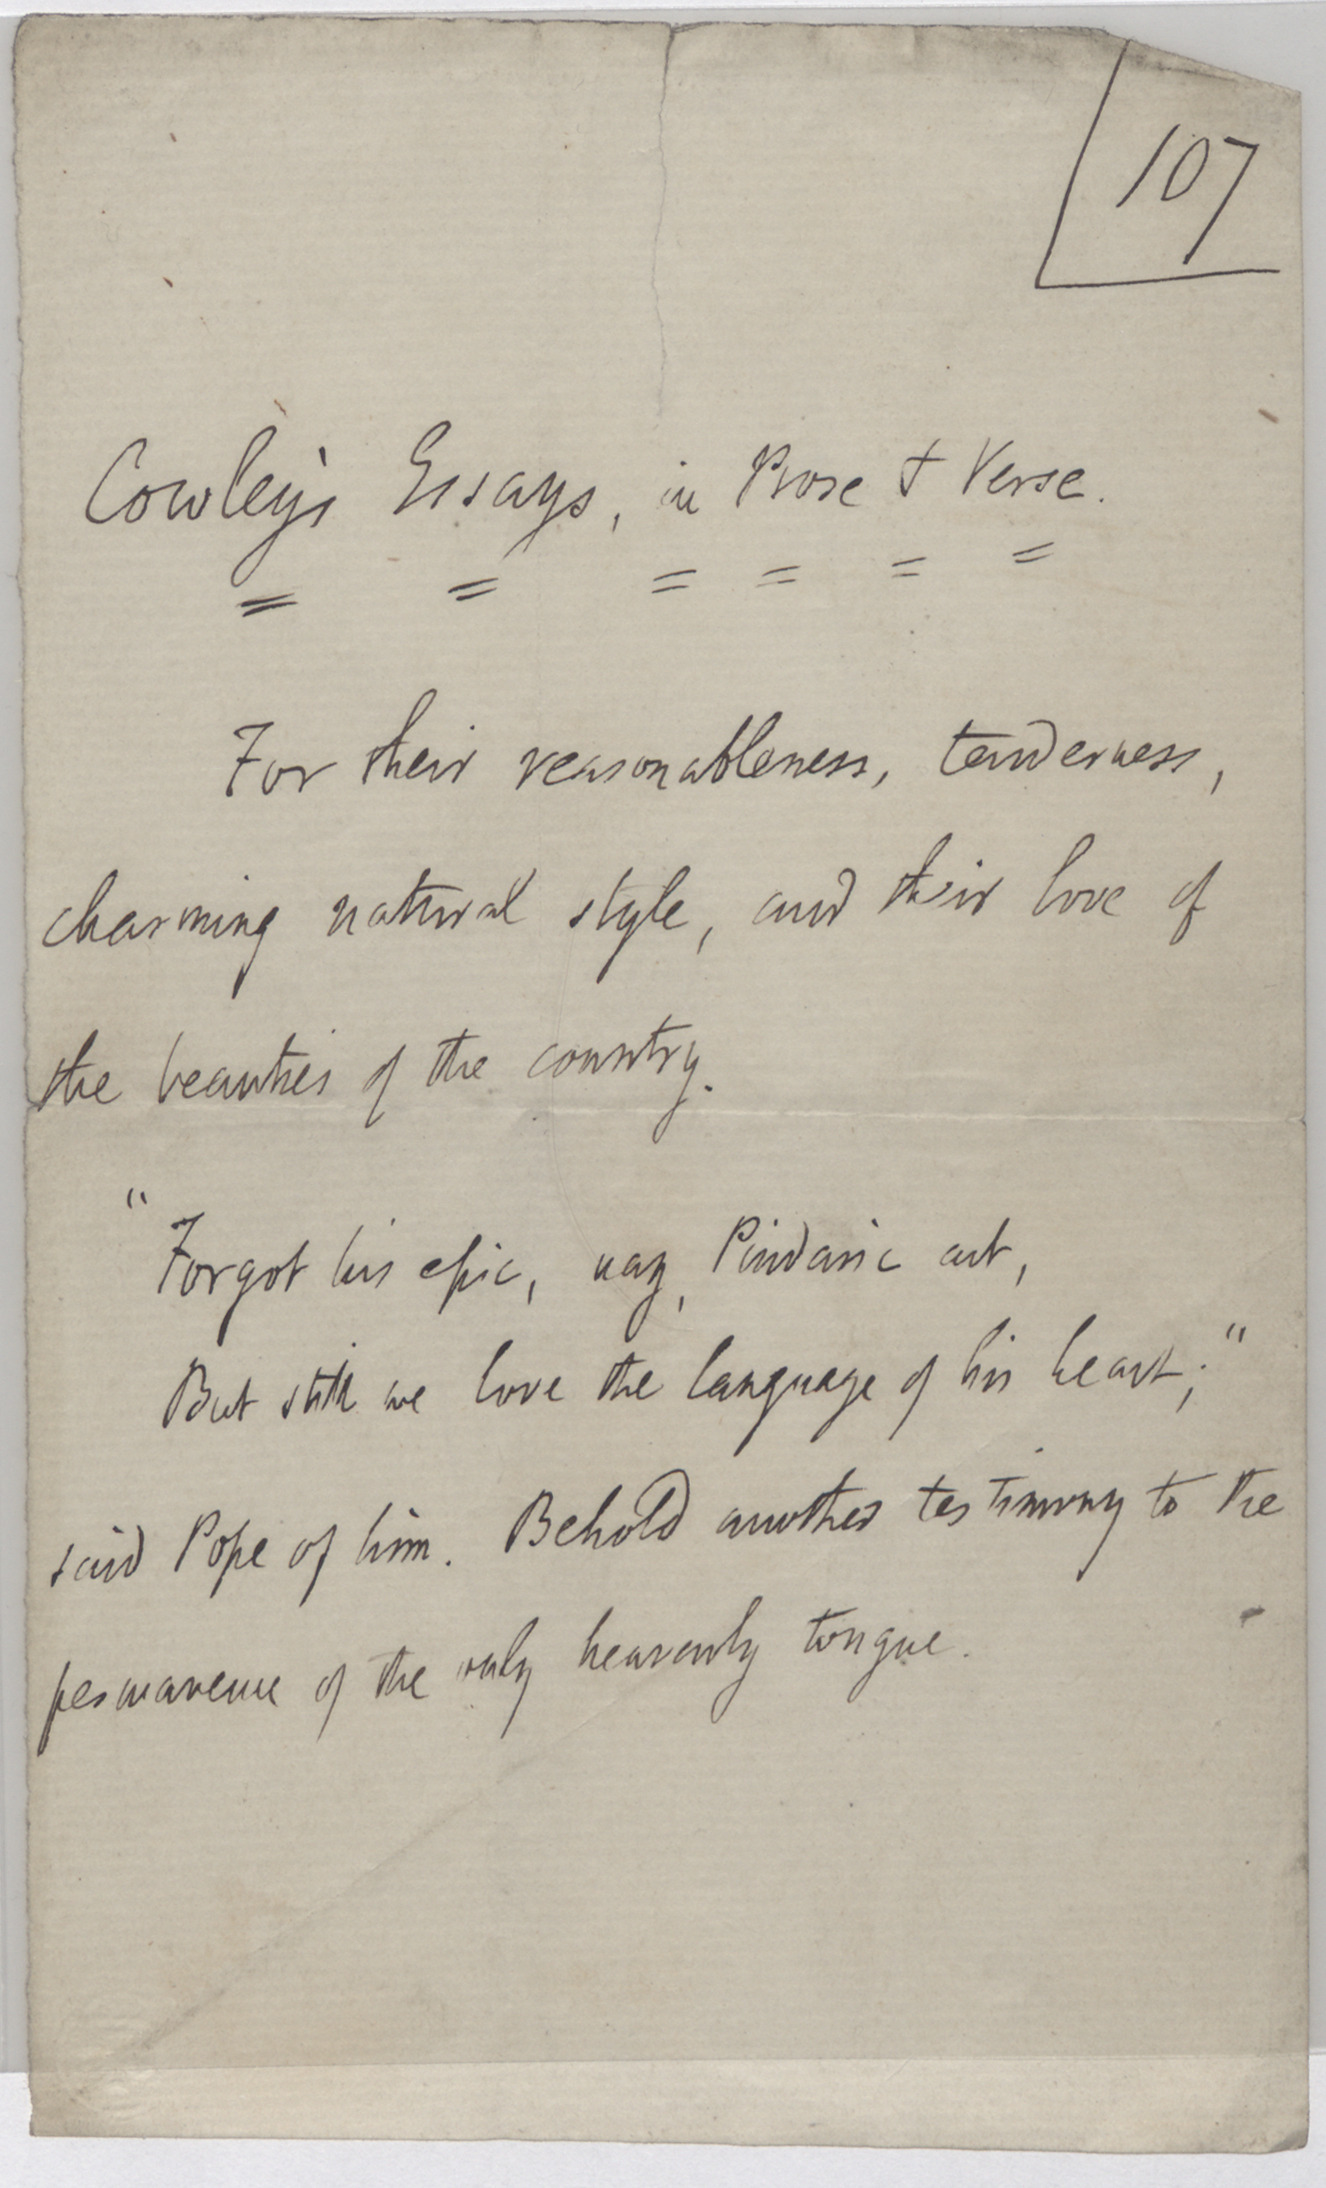 107
Cowley's Essays, in Prose & Verse.
For their reasonableness, tenderness,
charming natural style, and their love of
the beauties of the country.
"Forgot his epic, nay, Pindaric art,
But still we love the language of his heart;"
said Pope of him. Behold another testimony to the
permanence of the only heavenly tongue.